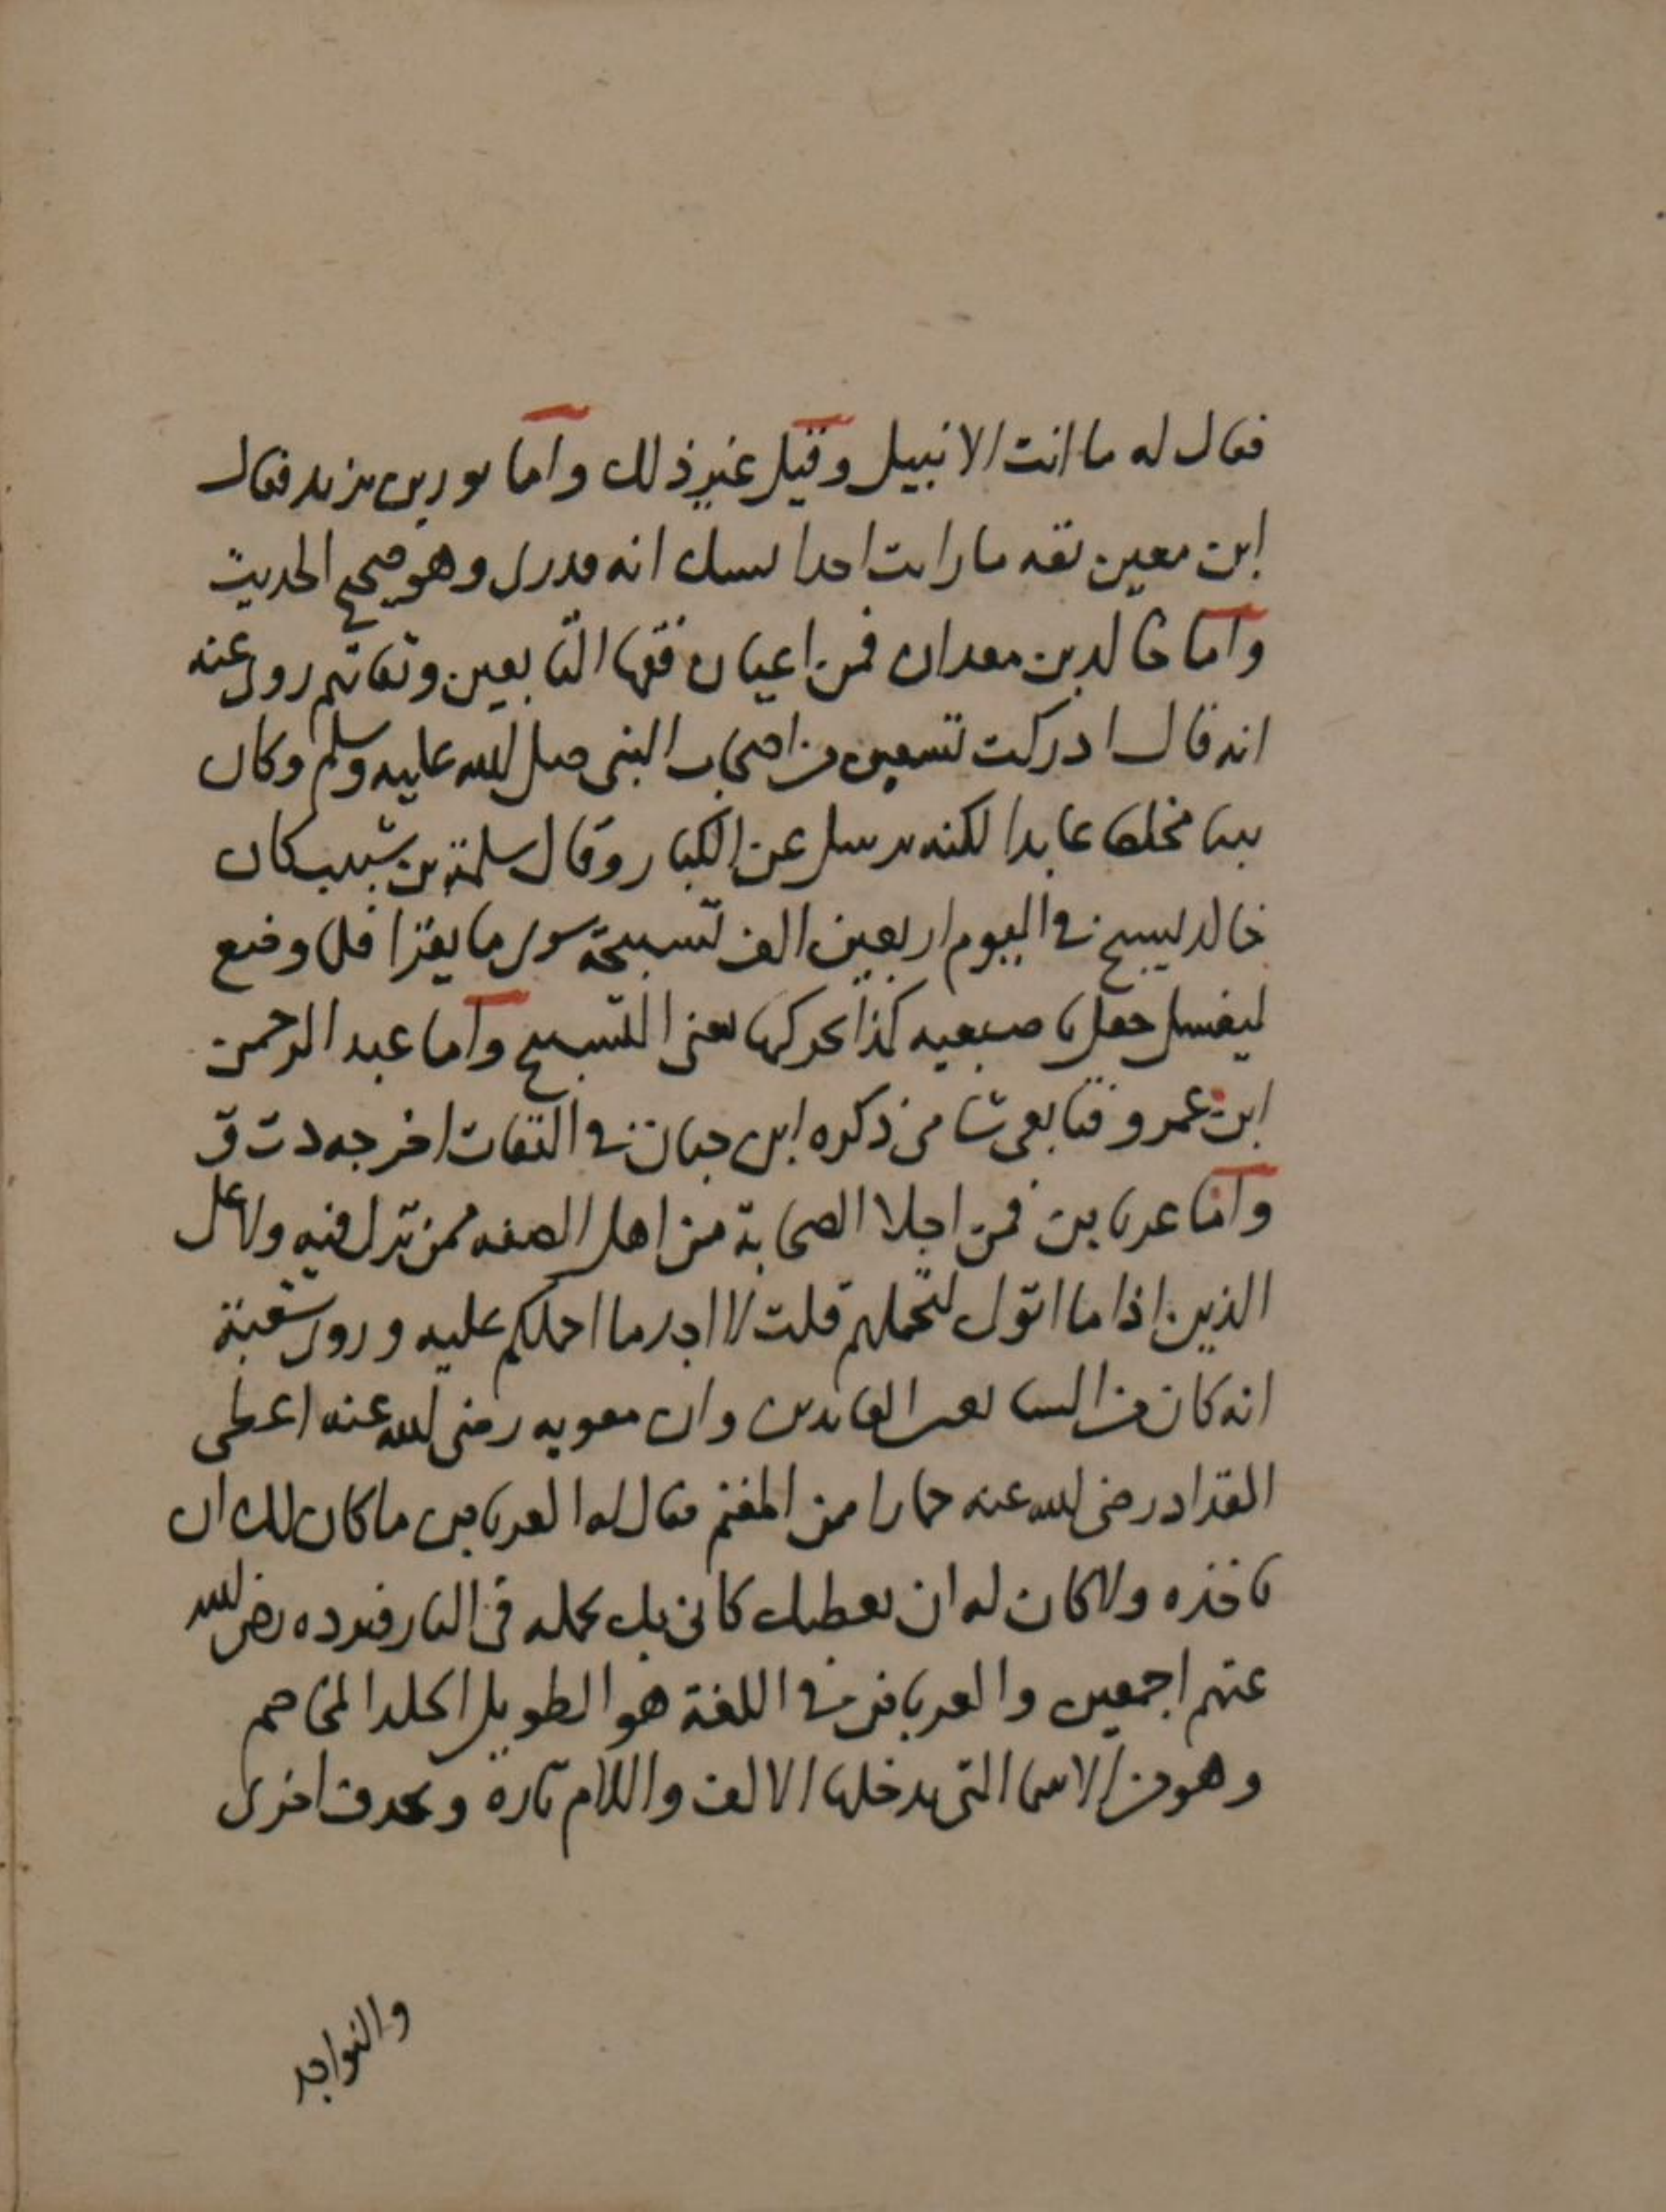 فقال له ما انت الا نبيل وقيل غير ذلك واما ثور بن يزيد فقال
ابن معين ثقه ما رايت احدا يشك انه قدري وهو صحيح الحديث
واما خالد بن معدان فمن اعيان فقها التابعين وثقاتهم روى عنه
انه قال ادركت تسعين من اصحاب النبي صلى الله عليه وسلم وكان
مخلصا عابدا لكنه يرسل عن الكبار وقال سلمة بن شبيب كان
خالد يسبح في اليوم اربعين الف تسبيحة سوى ما يقرا فلما وضع
ليغسل جعل باصبعيه كذا يحركها يعني التسبيح واما عبد الرحمن
ابن عمرو فتابعي شامي ذكره ابن حبان في الثقات اخرجه د ت ق
واما عرباض فمن اجلا الصحابة من اهل الصفه ممن نزل فيه ولا على
الذين اذا ما اتوك لتحملهم قلت لا اجد ما احملكم عليه وروى شعبة
انه كان من وان معويه رضي الله عنه اعطى
المقداد رضي الله عنه حمارا من المغنم فقال له العرباض ما كان لك ان
تاخذه ولا كان له ان يعطيك كاني بك تحمله في النار فرده رضي الله
عنهم اجمعين والعرباض في اللغة هو الطويل الجلد المخاصم
وهو من الاسما التي يدخلها الالف واللام تارة ويحذف اخرى
والنواجد